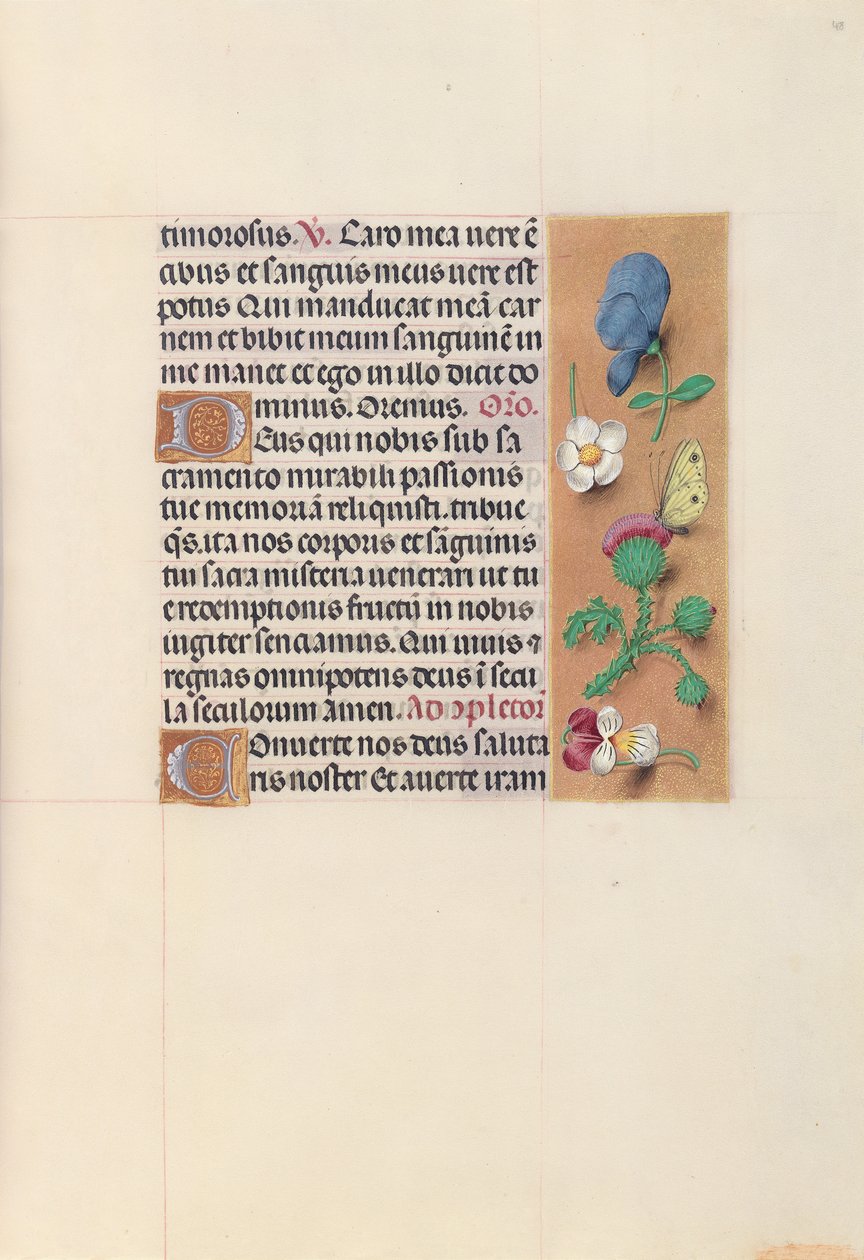 48
timorosus. V. Caro mea uere ē
cibus et sanguis meus uere est
potus Qui manducat meā car
nem et bibit meum sanguinē in
me manet et ego in illo dicit do
minus. Oremus. Or̃o.
Deus qui nobis sub sa
cramento mirabili passionis
tue memoriā reliquisti. tribue
q̃s. ita nos corporis et sāguinis
tui sacra misteria uenerari ut tu
e redemptionis fructū in nobis
iugiter senciamus. Qui uiuis ⁊
regnas omnipotens deus ī secu
la seculorum Amen. Ad ↄpletoꝛ̃
Conuerte nos deus saluta
ris noster Et auerte iram